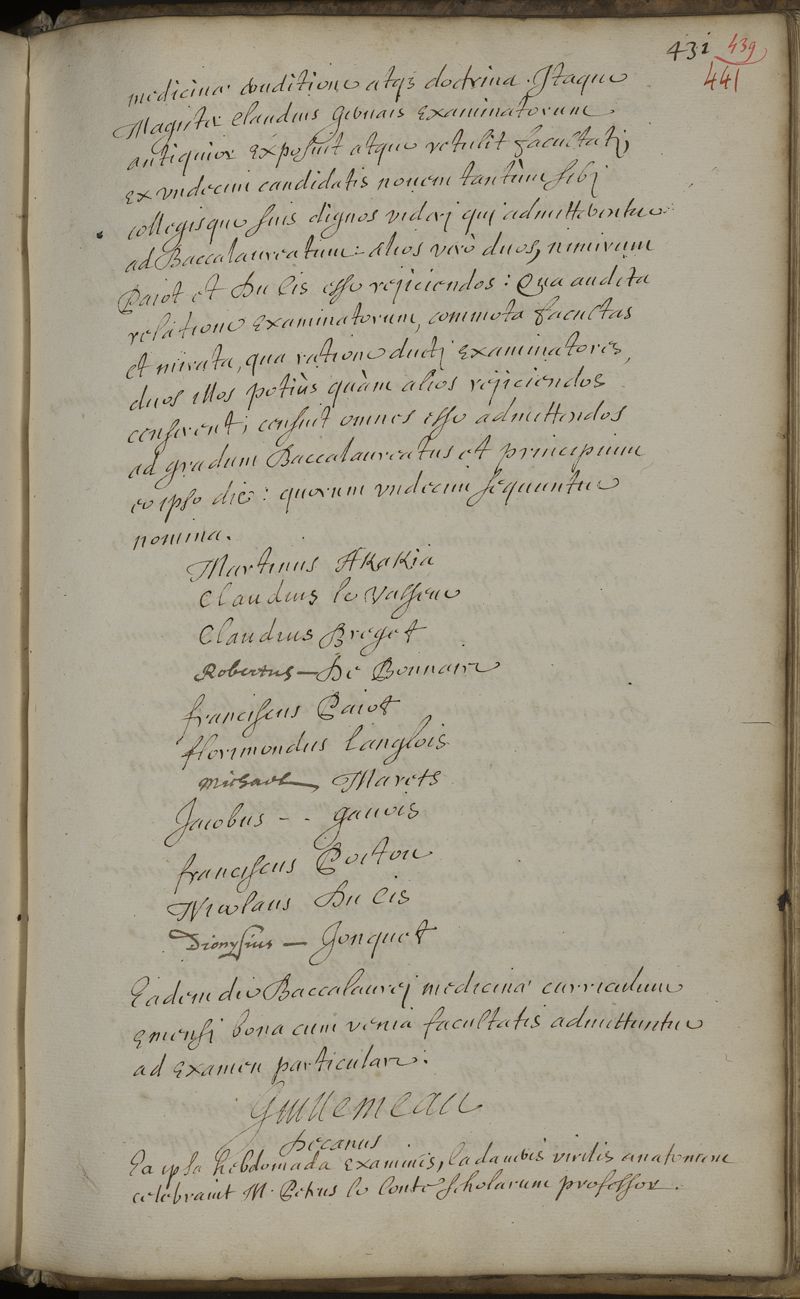 431 439
441
medicinæ eruditione atq3 doctrina. Itaque
Magister Claudius Gervais Examinatorum
antiquior Exposuit atque retulit facultatj,
Ex vndecim candidatis novem tantùm sibj
collegisque suis dignos viderj quj admitterentur
ad Baccalaureatum: alios verò duos, nimirum
Paiot et Du Cis esse rejiciendos: Qua audita
relatione Examinatorum, commota facultas
et mirata, qua ratione ductj Examinatores,
duos illos potiùs quàm alios rejiciendos
censerent; censuit omnes esse admittendos
ad gradum Baccalaureatus et principium
eo ipso die: quorum vndecim sequuntur
nomina.
Martinus AKaKia
Claudius le Vasseur
Claudius Breget
Robertus — De Bonnaire
franciscus Paiot
florimondus Langlois
Michael Marets
Jacobus - - Gavois
franciscus Poiton
Nicolaus Du Cis
Dionysius — Jonquet
Eadem die Baccalaurej medicinæ curriculum
Emensj bona cum venia facultatis admittuntur
ad Examen particulare.
Guillemeau
Decanus
Ea ipsa hebdomada Examinis, cadaveris virilis anatomem
celebravit M. Petrus le Conte scholarum professor.